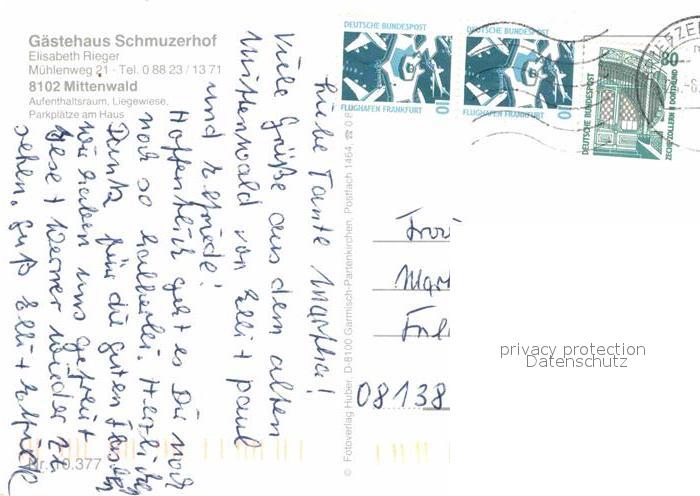 Gästehaus Schmuzerhof
Elisabeth Rieger
Mühlenweg 21 - Tel. 0 88 23 / 13 71
8102 Mittenwald
Aufenthaltsraum, Liegewiese,
Parkplätze am Haus
Liebe Tante Martha!
Viele Grüße aus dem alten
Mittenwald von Elli + Paul
und Elfriede!
Hoffentlich geht es Dir noch
noch so halberlei. Herzliche
Dank für die guten
wir haben uns gefreut
+ Werner wieder zu
sehen. Gruß Elli + Elfriede
Nr. 10.377
© Fotoverlag Huber, D-8100 Garmisch-Partenkirchen, Postfach 1464, ☎ 0 8
DEUTSCHE BUNDESPOST
10
FLUGHAFEN FRANKFURT
DEUTSCHE BUNDESPOST
10
FLUGHAFEN FRANKFURT
DEUTSCHE BUNDESPOST
80
ZECHE ZOLLERN II DORTMUND
Mart
08138
privacy protection
Datenschutz